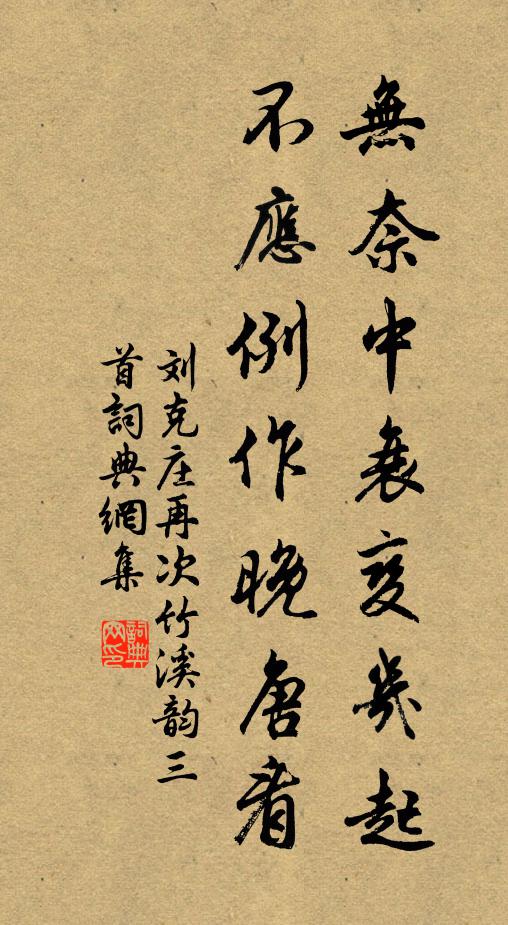 無奈中衰变幾起
不應例作晚唐看
刘克庄再次竹溪韵三
首詞典網集
詞典
网印